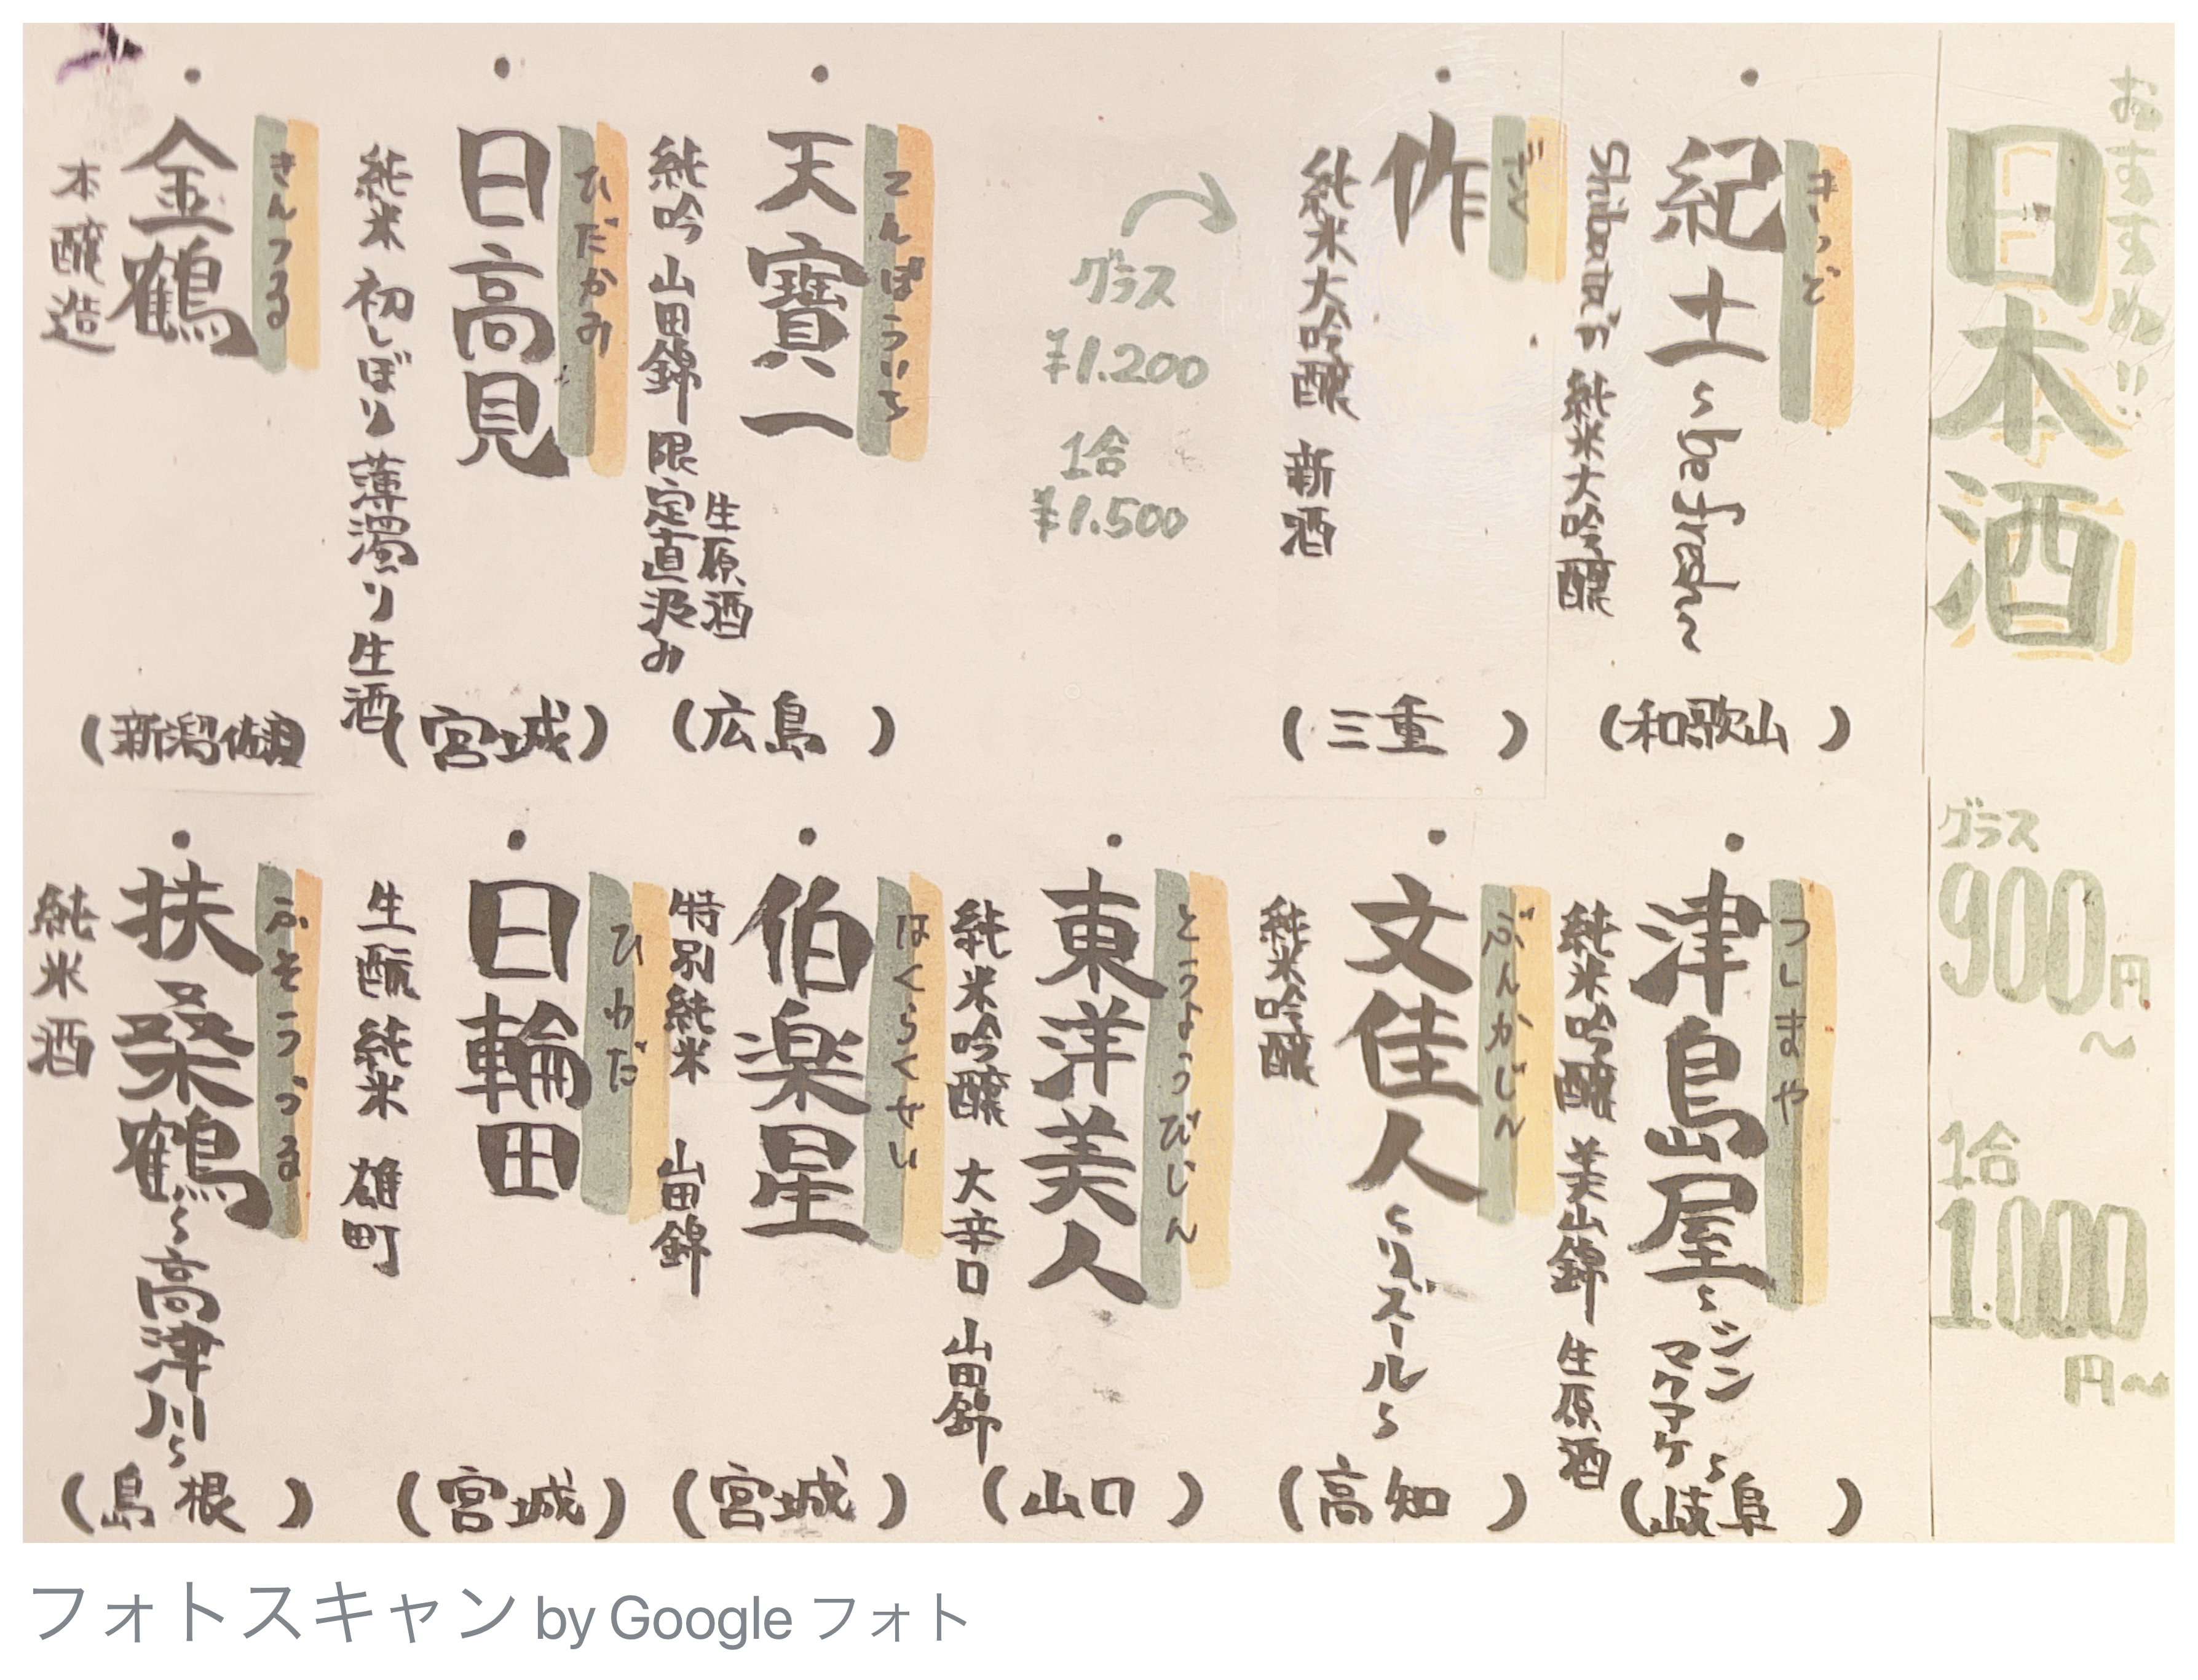 おすすめ!!
日本酒
グラス
900円
〜
1合
1.000
円〜
・
きっど
紀土
〜
Shibata's 純米大吟醸
(和歌山)
・
ざく
作
純米大吟醸 新酒
(三重)
グラス
¥1.200
1合
¥1.500
・
てんぽういち
天寶一
生原酒
純吟 山田錦 限定直汲み
(広島)
・
ひだかみ
日高見
純米 初しぼり 薄濁り 生酒
(宮城)
・
きんつる
金鶴
本醸造
(新潟佐渡)
・
つしまや
津島屋
〜シン
マクアケ〜
純米吟醸 美山錦 生原酒
(岐阜)
・
ぶんかじん
文佳人
〜リズール〜
純米吟醸
(高知)
・
とうようびじん
東洋美人
純米吟醸 大辛口 山田錦
(山口)
・
はくらくせい
伯楽星
特別純米 山田錦
(宮城)
・
ひわだ
日輪田
生酛 純米 雄町
(宮城)
・
ふそうづる
扶桑鶴
〜高津川〜
純米酒
(島根)
フォトスキャン by Google フォト